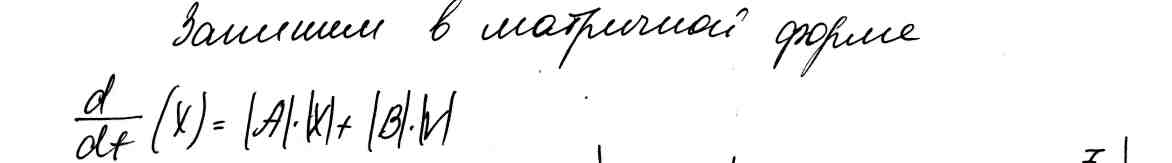 Запишем в матричной форме
d/dt (X) = |A|·|X| + |B|·|V|